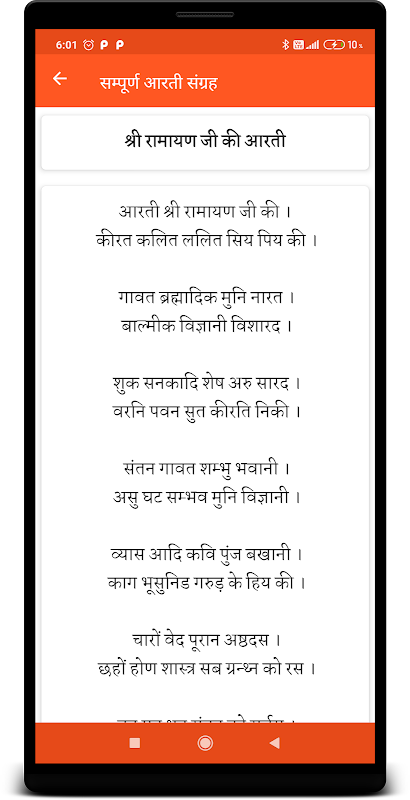 6:01
10%
सम्पूर्ण आरती संग्रह
श्री रामायण जी की आरती
आरती श्री रामायण जी की ।
कीरत कलित ललित सिय पिय की ।
गावत ब्रह्मादिक मुनि नारत ।
बाल्मीक विज्ञानी विशारद ।
शुक सनकादि शेष अरु सारद ।
वरनि पवन सुत कीरति निकी ।
संतन गावत शम्भु भवानी ।
असु घट सम्भव मुनि विज्ञानी ।
व्यास आदि कवि पुंज बखानी ।
काग भूसुनिड गरुड़ के हिय की ।
चारों वेद पूरान अष्ठदस ।
छहों होण शास्त्र सब ग्रन्थ्न को रस ।